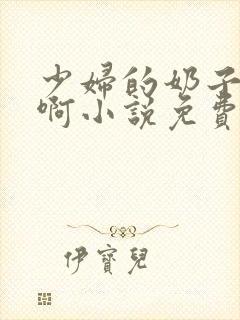 少婦的奶子
啊小說免費
伊寶兒